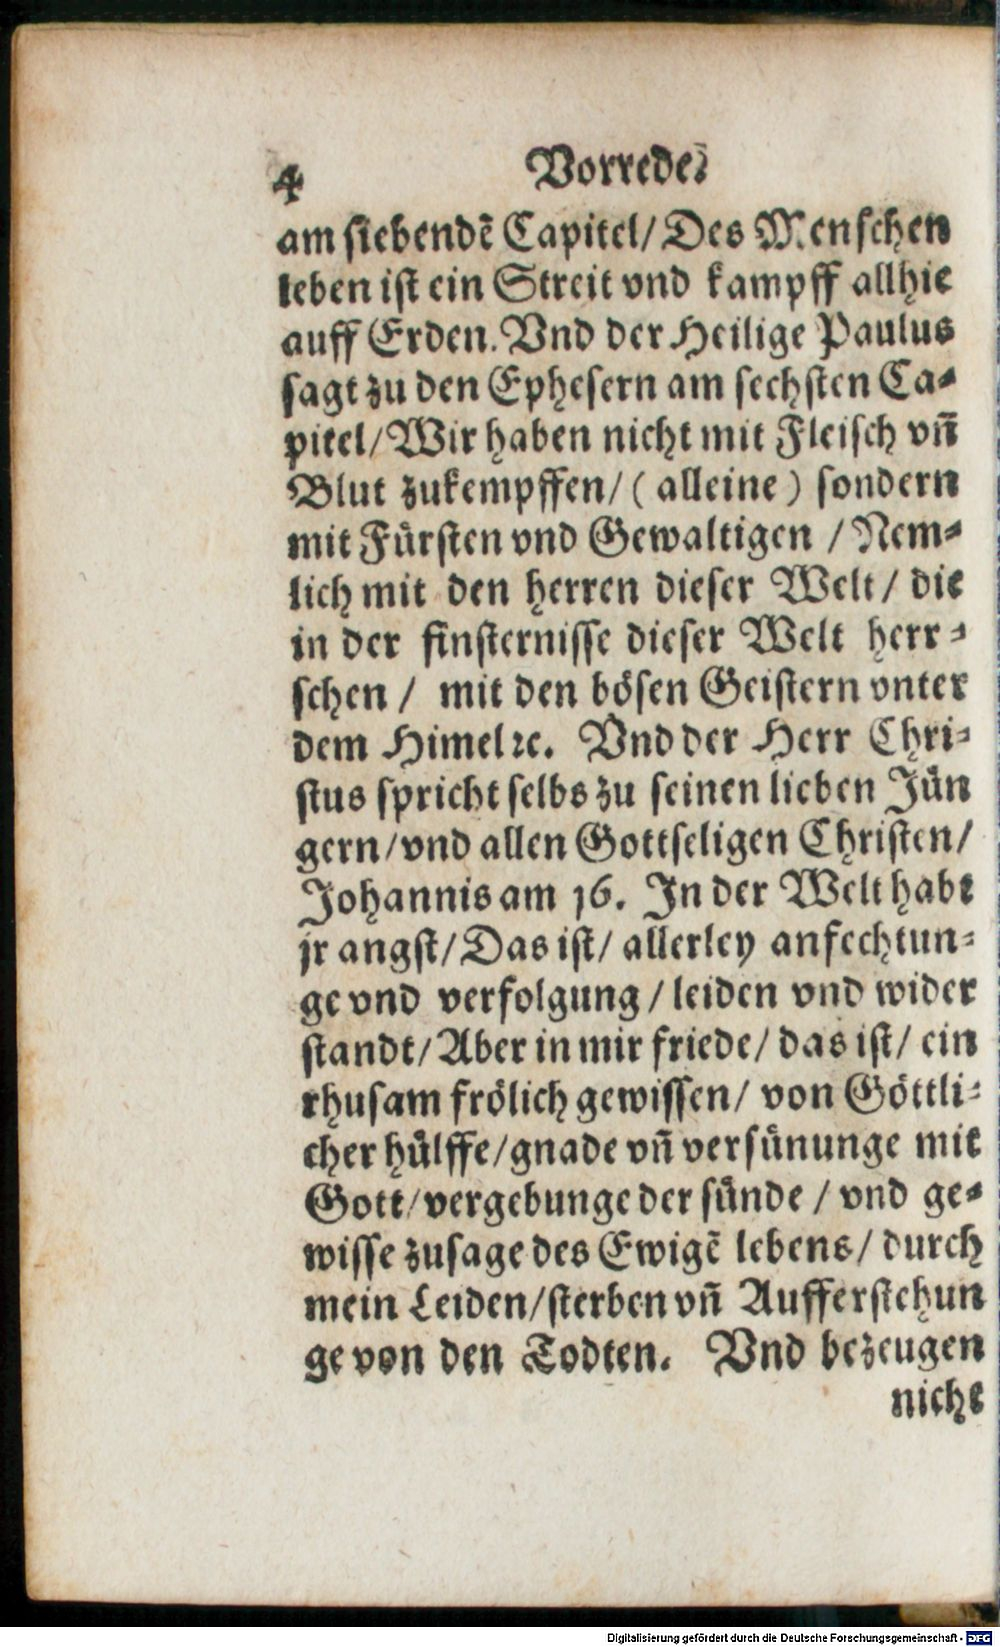 4 Vorrede.
am siebendē Capitel/ Des Menschen
leben ist ein Streit vnd kampff allhie
auff Erden. Vnd der Heilige Paulus
sagt zu den Ephesern am sechsten Ca-
pitel/ Wir haben nicht mit Fleisch vn̄
Blut zukempffen/ (alleine) sondern
mit Fürsten vnd Gewaltigen / Nem-
lich mit den herren dieser Welt/ die
in der finsternisse dieser Welt herr-
schen / mit den bösen Geistern vnter
dem Himel ꝛc. Vnd der Herr Chri-
stus spricht selbs zu seinen lieben Jün
gern/ vnd allen Gottseligen Christen/
Johannis am 16. In der Welt habt
jr angst/ Das ist/ allerley anfechtun-
ge vnd verfolgung / leiden vnd wider
standt/ Aber in mir friede/ das ist/ ein
rhusam frölich gewissen/ von Göttli-
cher hülffe/ gnade vn̄ versünunge mit
Gott/ vergebunge der sünde / vnd ge-
wisse zusage des Ewigē lebens/ durch
mein Leiden/ sterben vn̄ Aufferstehun
ge von den Todten. Vnd bezeugen
nicht
Digitalisierung gefördert durch die Deutsche Forschungsgemeinschaft - DFG